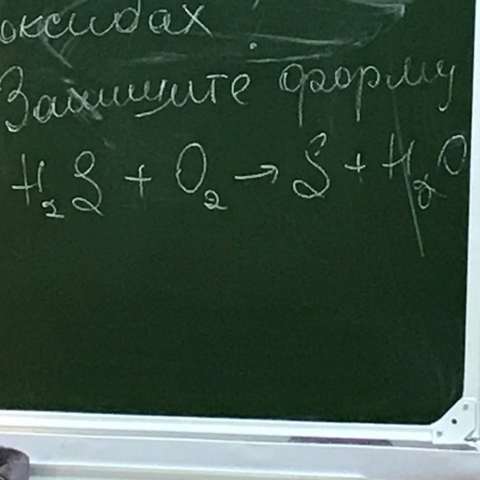 оксидах
Запишите форму
H₂S + O₂ → S + H₂O